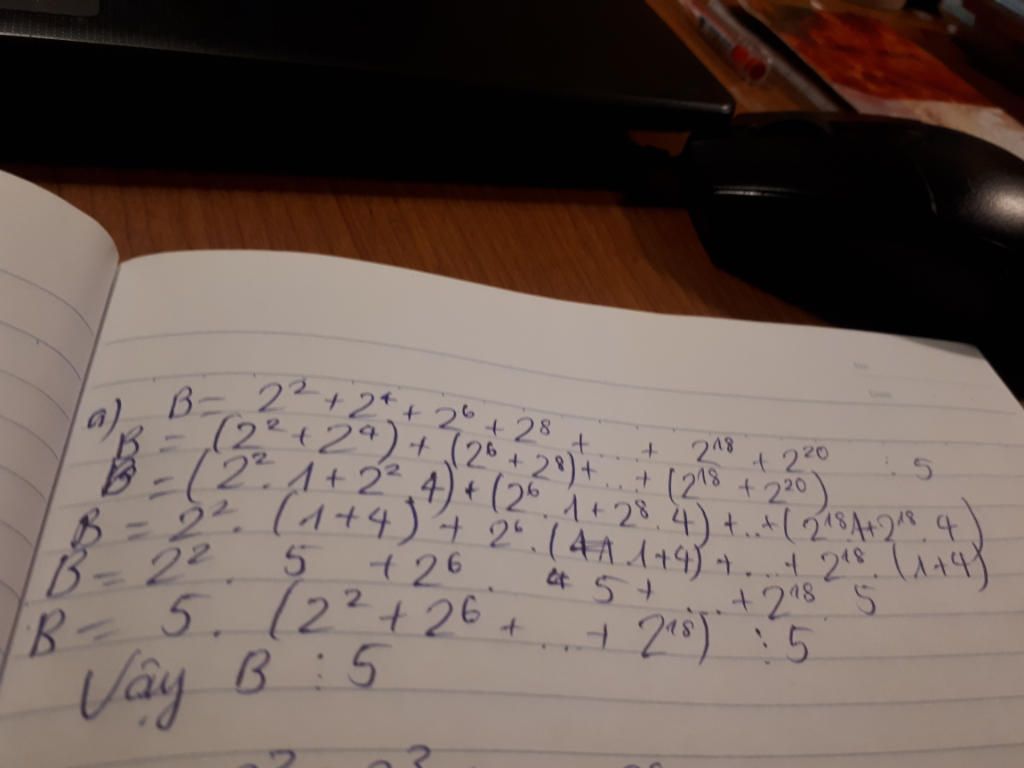 a) B = 2² + 2⁴ + 2⁶ + 2⁸ + ... + 2¹⁸ + 2²⁰ ⋮ 5
B = (2² + 2⁴) + (2⁶ + 2⁸) + ... + (2¹⁸ + 2²⁰)
B = (2² . 1 + 2² 4) + (2⁶ . 1 + 2⁸ . 4) + ... + (2¹⁸ 1 + 2¹⁸ . 4)
B = 2² . (1 + 4) + 2⁶ . (1 + 4) + ... + 2¹⁸ . (1 + 4)
B = 2² . 5 + 2⁶ . 5 + ... + 2¹⁸ 5
B = 5 . (2² + 2⁶ + ... + 2¹⁸) ⋮ 5
Vậy B ⋮ 5